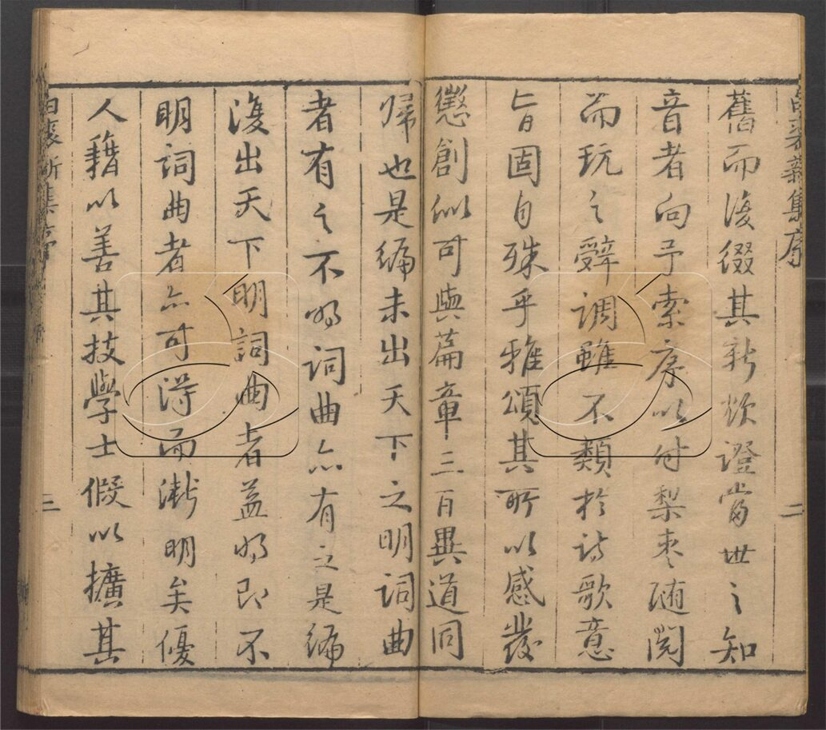 舊而復綴其新欲證當世之知
音者向予索序以付梨枣随閱
而玩之辤調雖不類於诗歌意
旨固自殊乎雅頌其所以感發
懲創似可與篇章三百異道同
歸也是編未出天下之明詞曲
者有之不明词曲亦有之是編
復出天下明詞曲者益明即不
明詞曲者亦可淂而漸明矣優
人藉以善其技學士假以擴其
集序
二
三